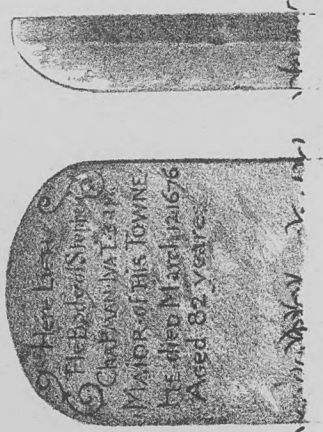 Here Lieth
The Body of
Chapman
MAIOR of THIS TOWNE
He died March 12 1676
Aged 82 yeares